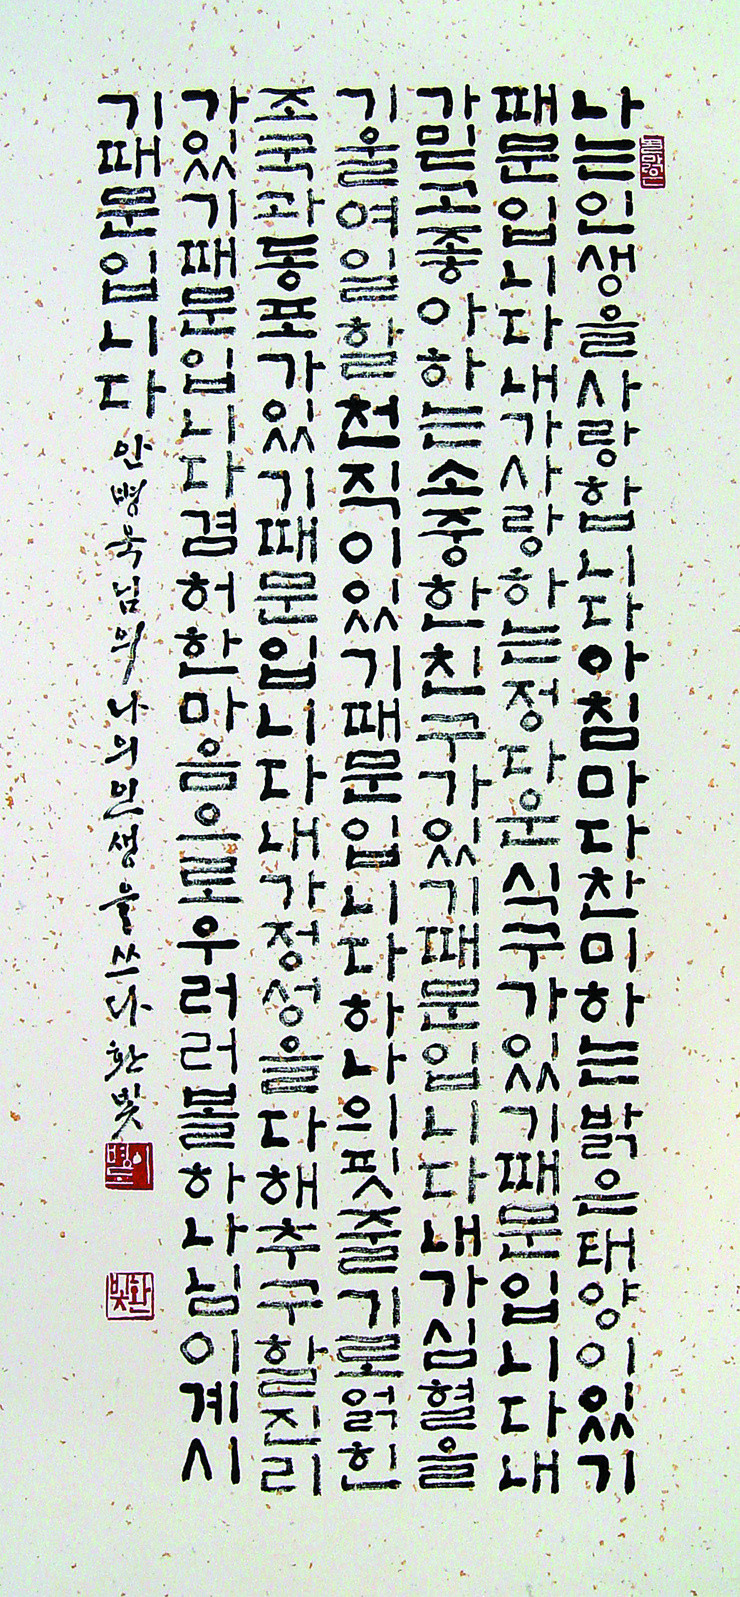 나는인생을사랑합니다아침마다찬미하는밝은태양이있기
때문입니다내가사랑하는정다운식구가있기때문입니다내
가믿고좋아하는소중한친구가있기때문입니다내가심혈을
기울여일할천직이있기때문입니다하나의핏줄기로얽힌
조국과동포가있기때문입니다내가정성을다해추구할진리
가있기때문입니다겸허한마음으로우러러볼하나님이계시
기때문입니다 안병욱님의 나의인생을 쓰다 환빛
환빛